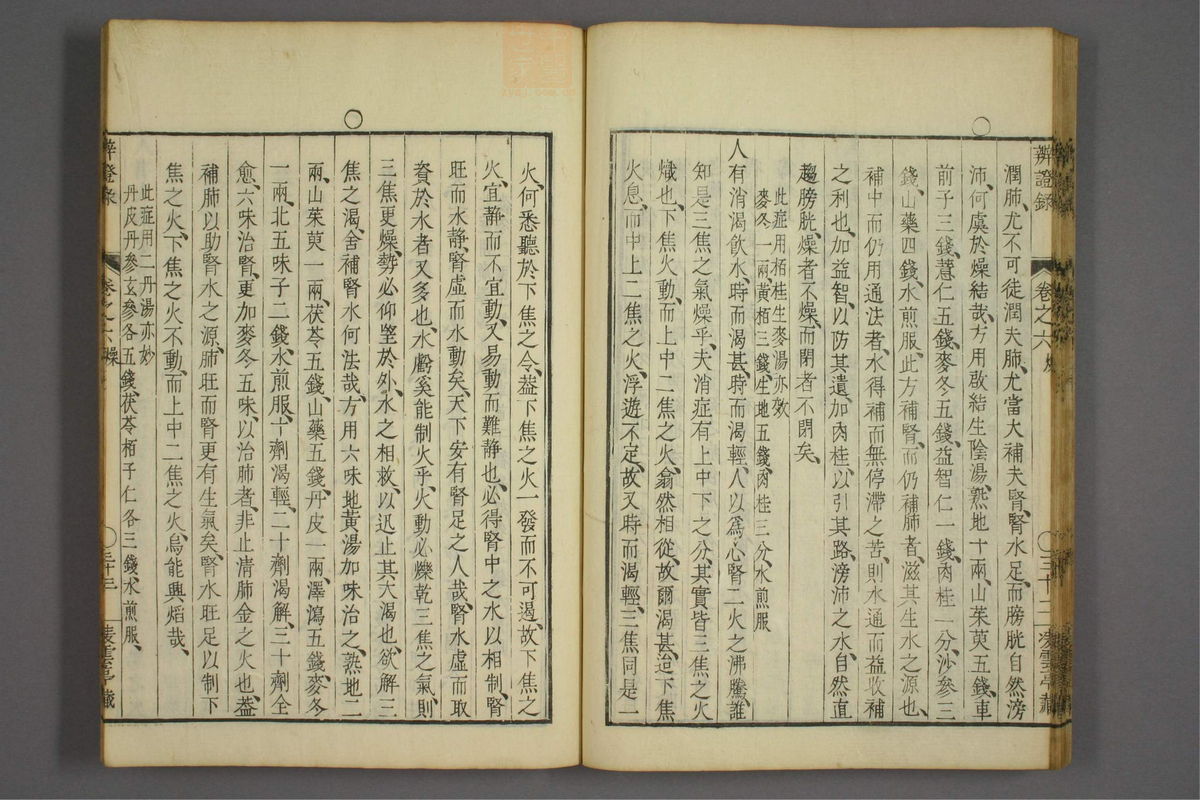 辨證錄 卷之六 燥 三十二 凌雲亭藏
潤肺尤不可徒潤夫肺尤當大補夫腎腎水足而膀胱自然滂
沛何虞於燥結哉方用啟結生陰湯熟地十兩山茱萸五錢車
前子三錢薏仁五錢麥冬五錢益智仁一錢肉桂一分沙參三
錢山藥四錢水煎服此方補腎而仍補肺者滋其生水之源也
補中而仍用通法者水得補而無停滯之苦則水通而益收補
之利也加益智以防其遺加肉桂以引其路滂沛之水自然直
趨膀胱燥者不燥而閉者不閉矣
此症用栢桂生麥湯亦效
麥冬一兩黃栢三錢生地五錢肉桂三分水煎服
人有消渴飲水時而渴甚時而渴輕人以為心腎二火之沸騰誰
知是三焦之氣燥乎夫消症有上中下之分其實皆三焦之火
熾也下焦火動而上中二焦之火翕然相從故爾渴甚迨下焦
火息而中上二焦之火浮遊不定故又時而渴輕三焦同是一
火何悉聽於下焦之令葢下焦之火一發而不可遏故下焦之
火宜静而不宜動又易動而難静也必得腎中之水以相制腎
旺而水静腎虛而水動矣天下安有腎足之人哉腎水虛而取
資於水者又多也水虧奚能制火乎火動必爍乾三焦之氣則
三焦更燥勢必仰望於外水之相救以迟止其大渴也欲解三
焦之渴舍補腎水何法哉方用六味地黃湯加味治之熟地二
兩山茱萸一兩茯苓五錢山藥五錢丹皮一兩澤瀉五錢麥冬
一兩北五味子二錢水煎服十劑渴輕二十劑渴解三十劑全
愈六味治腎更加麥冬五味以治肺者非止清肺金之火也葢
補肺以助腎水之源肺旺而腎更有生氣矣腎水旺足以制下
焦之火下焦之火不動而上中二焦之火烏能興焰哉
此症用二丹湯亦妙
丹皮丹參玄參各五錢茯苓栢子仁各三錢水煎服
辨證錄 卷之六 燥 三十三 凌雲亭藏